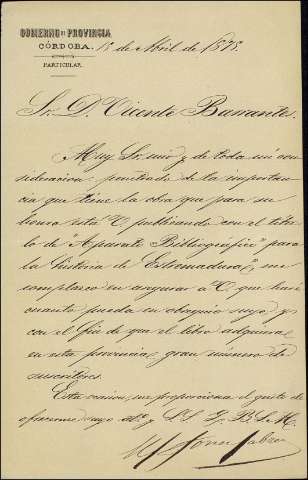 GOBIERNO DE PROVINCIA
CÓRDOBA.
PARTICULAR.
15 de Abril de 1875.
Sr. D. Vicente Barrantes.
Muy Sr. mio y de toda mi con
sideracion, penetrado de la importan
cia que tiene la obra que para su
honra está V. publicando con el titu
lo de "Aparato Bibliográfico" para
la historia de Estremadura", me
complazco en asegurar á V. que haré
cuanto pueda en obsequio suyo, y
con el fin de que el libro adquiera
en esta provincia gran número de
suscritores.
Esta ocasion, me proporciona el gusto de
ofrecerme suyo at.º y S. S. Q. B. S. M.